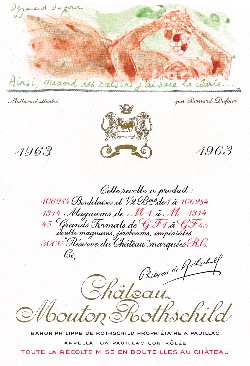 Bernard Dufour
63
Ainsi, quand des raisins j'ai sucé la clarté...
Mallarmé illustré par Bernard Dufour
1963 1963
Cette récolte a produit :
106284 Bordelaises et 1/2 Bses de 1 à 106284
1314 Magnums de M 1 à M 1314
45 Grands Formats de G F 1 à G F 45
double magnums, jéroboams, impériales
3000 "Réserve du Château" marquées R.C.
Ci,
Château
Mouton Rothschild
BARON PHILIPPE DE ROTHSCHILD PROPRIÉTAIRE A PAUILLAC
APPELLATION PAUILLAC CONTRÔLÉE
TOUTE LA RÉCOLTE MISE EN BOUTEILLES AU CHÂTEAU